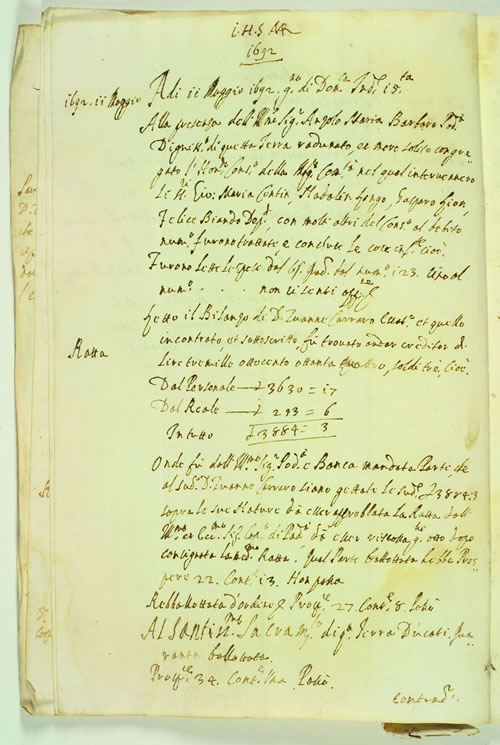 I.H.S
1692
1692. 11 Maggio
Adi 11 Maggio 1692. g.no di Dom.ca Ind.e 15.ta
Alla presenza dell Ill.mo Sig.r Angolo Maria Barbaro Pod.à
Dignis.o di questa Terra radunato, et more solito congre
gato l'Hon.do Cons.o della Mag.ca Com.tà nel qual intervennero
Li Gio: Maria Contin, Madalin Longo, Gasparo
Felice Biando Dep.i, con molti altri del Cons.o al debito
num.o furono trattate e concluse le cose inf.te Cioè.
Furono lette le spese dal num.o 123. sino al
num.o . . . non si senti
Letto il Bilanzo di D. Zuanne Carraro et quello
incontrato, et sottoscritto, fù trovato andar creditor di
Lire tre mille ottocento ottanta quattro, soldi trè, Cioè.
Ratta
Dal Personale — £ 3630 = 17
Dal Reale — £ 253 = 6
In tutto £ 3884 = 3
Onde fù dall' Ill.mo Sig.r Pod.à e Banca mandata Parte, che
al sud.o D. Zuanne Carraro siano gettate le sud.e £ 3884:3
sopra le sue Nature dà esser approbata la Ratta dall
Ill.mo et Ecc.mo Sig. Cap.o di Pad.a dà esser riscossa g.ni otto dopo
consignata la med.ma Ratta. Qual Parte ballottata hebbe Pros
pere 22. Cont.e 13.
Reballottata d'ordine Prosp.e 27. Cont.e 8.
Al Santiss.mo Sacram.to di q.ta Terra Ducati qua
ranta ballottata.
Prosp.e 34. Cont.e Una